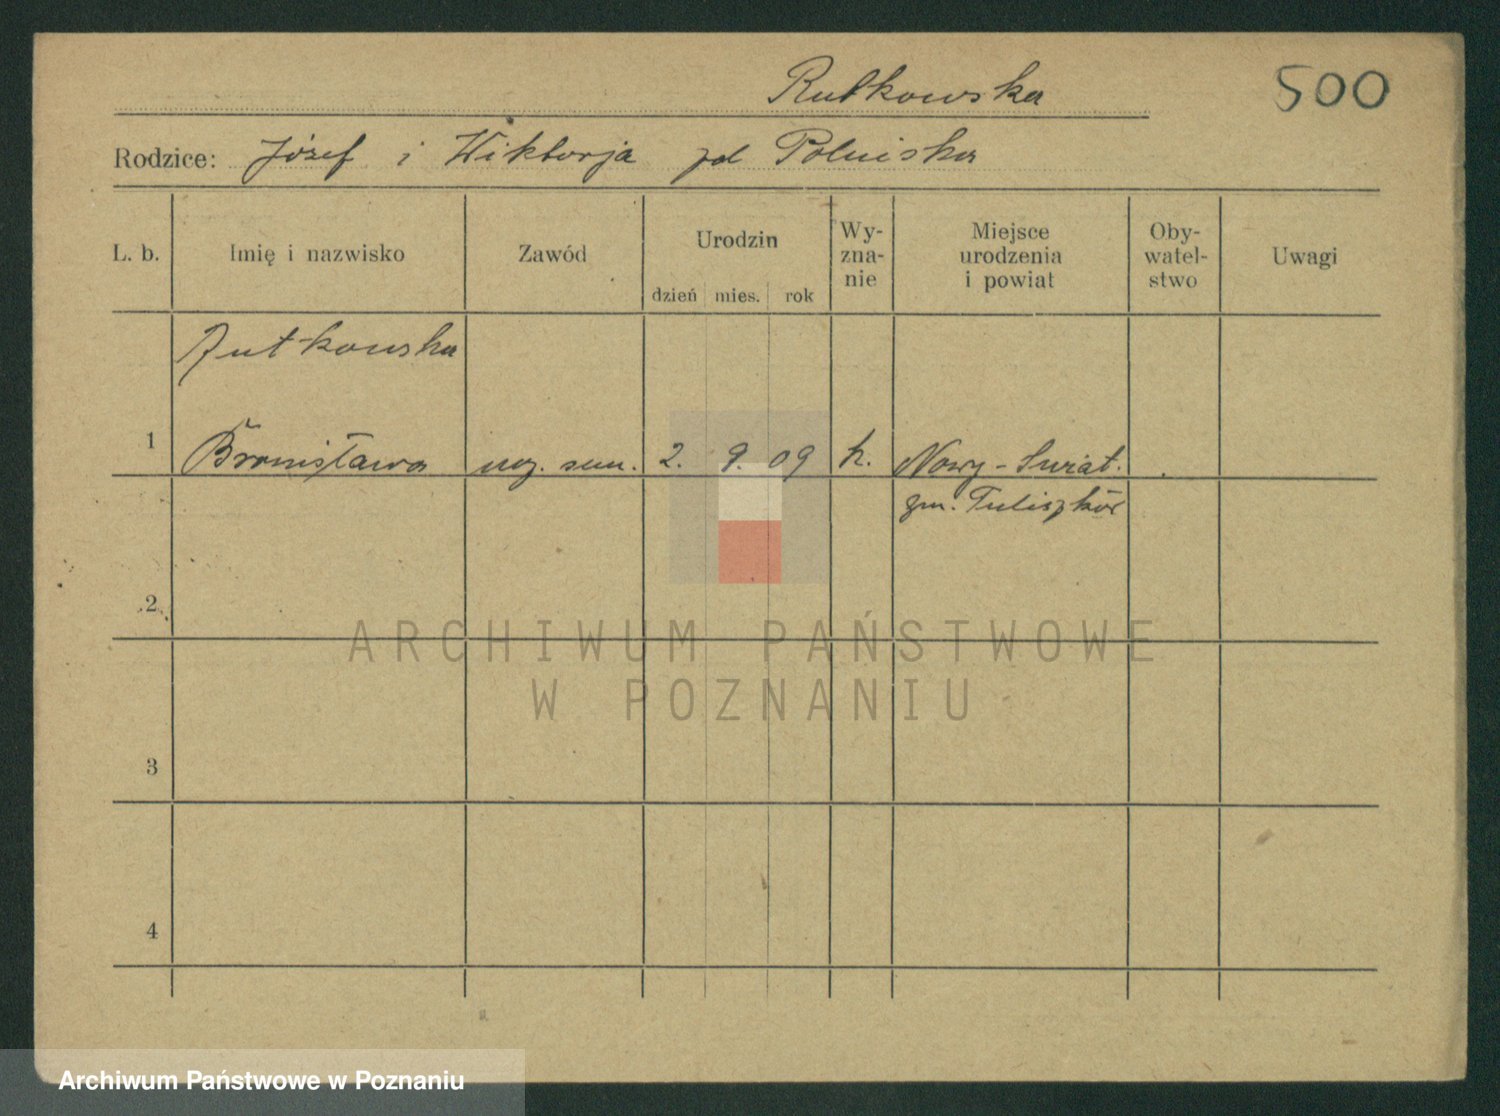 Rutkowska 500
Rodzice: Józef i Wiktorja zd Polniska
L. b. Imię i nazwisko Zawód Urodzin dzień mies. rok Wy- zna- nie Miejsce urodzenia i powiat Oby- watel- stwo Uwagi
Rutkowska
1 Bronisława 2. 9. 09 k. Nowy-Swiat.
gm. Tuliszków
2
ARCHIWUM PAŃSTWOWE
W POZNANIU
3
4
Archiwum Państwowe w Poznaniu